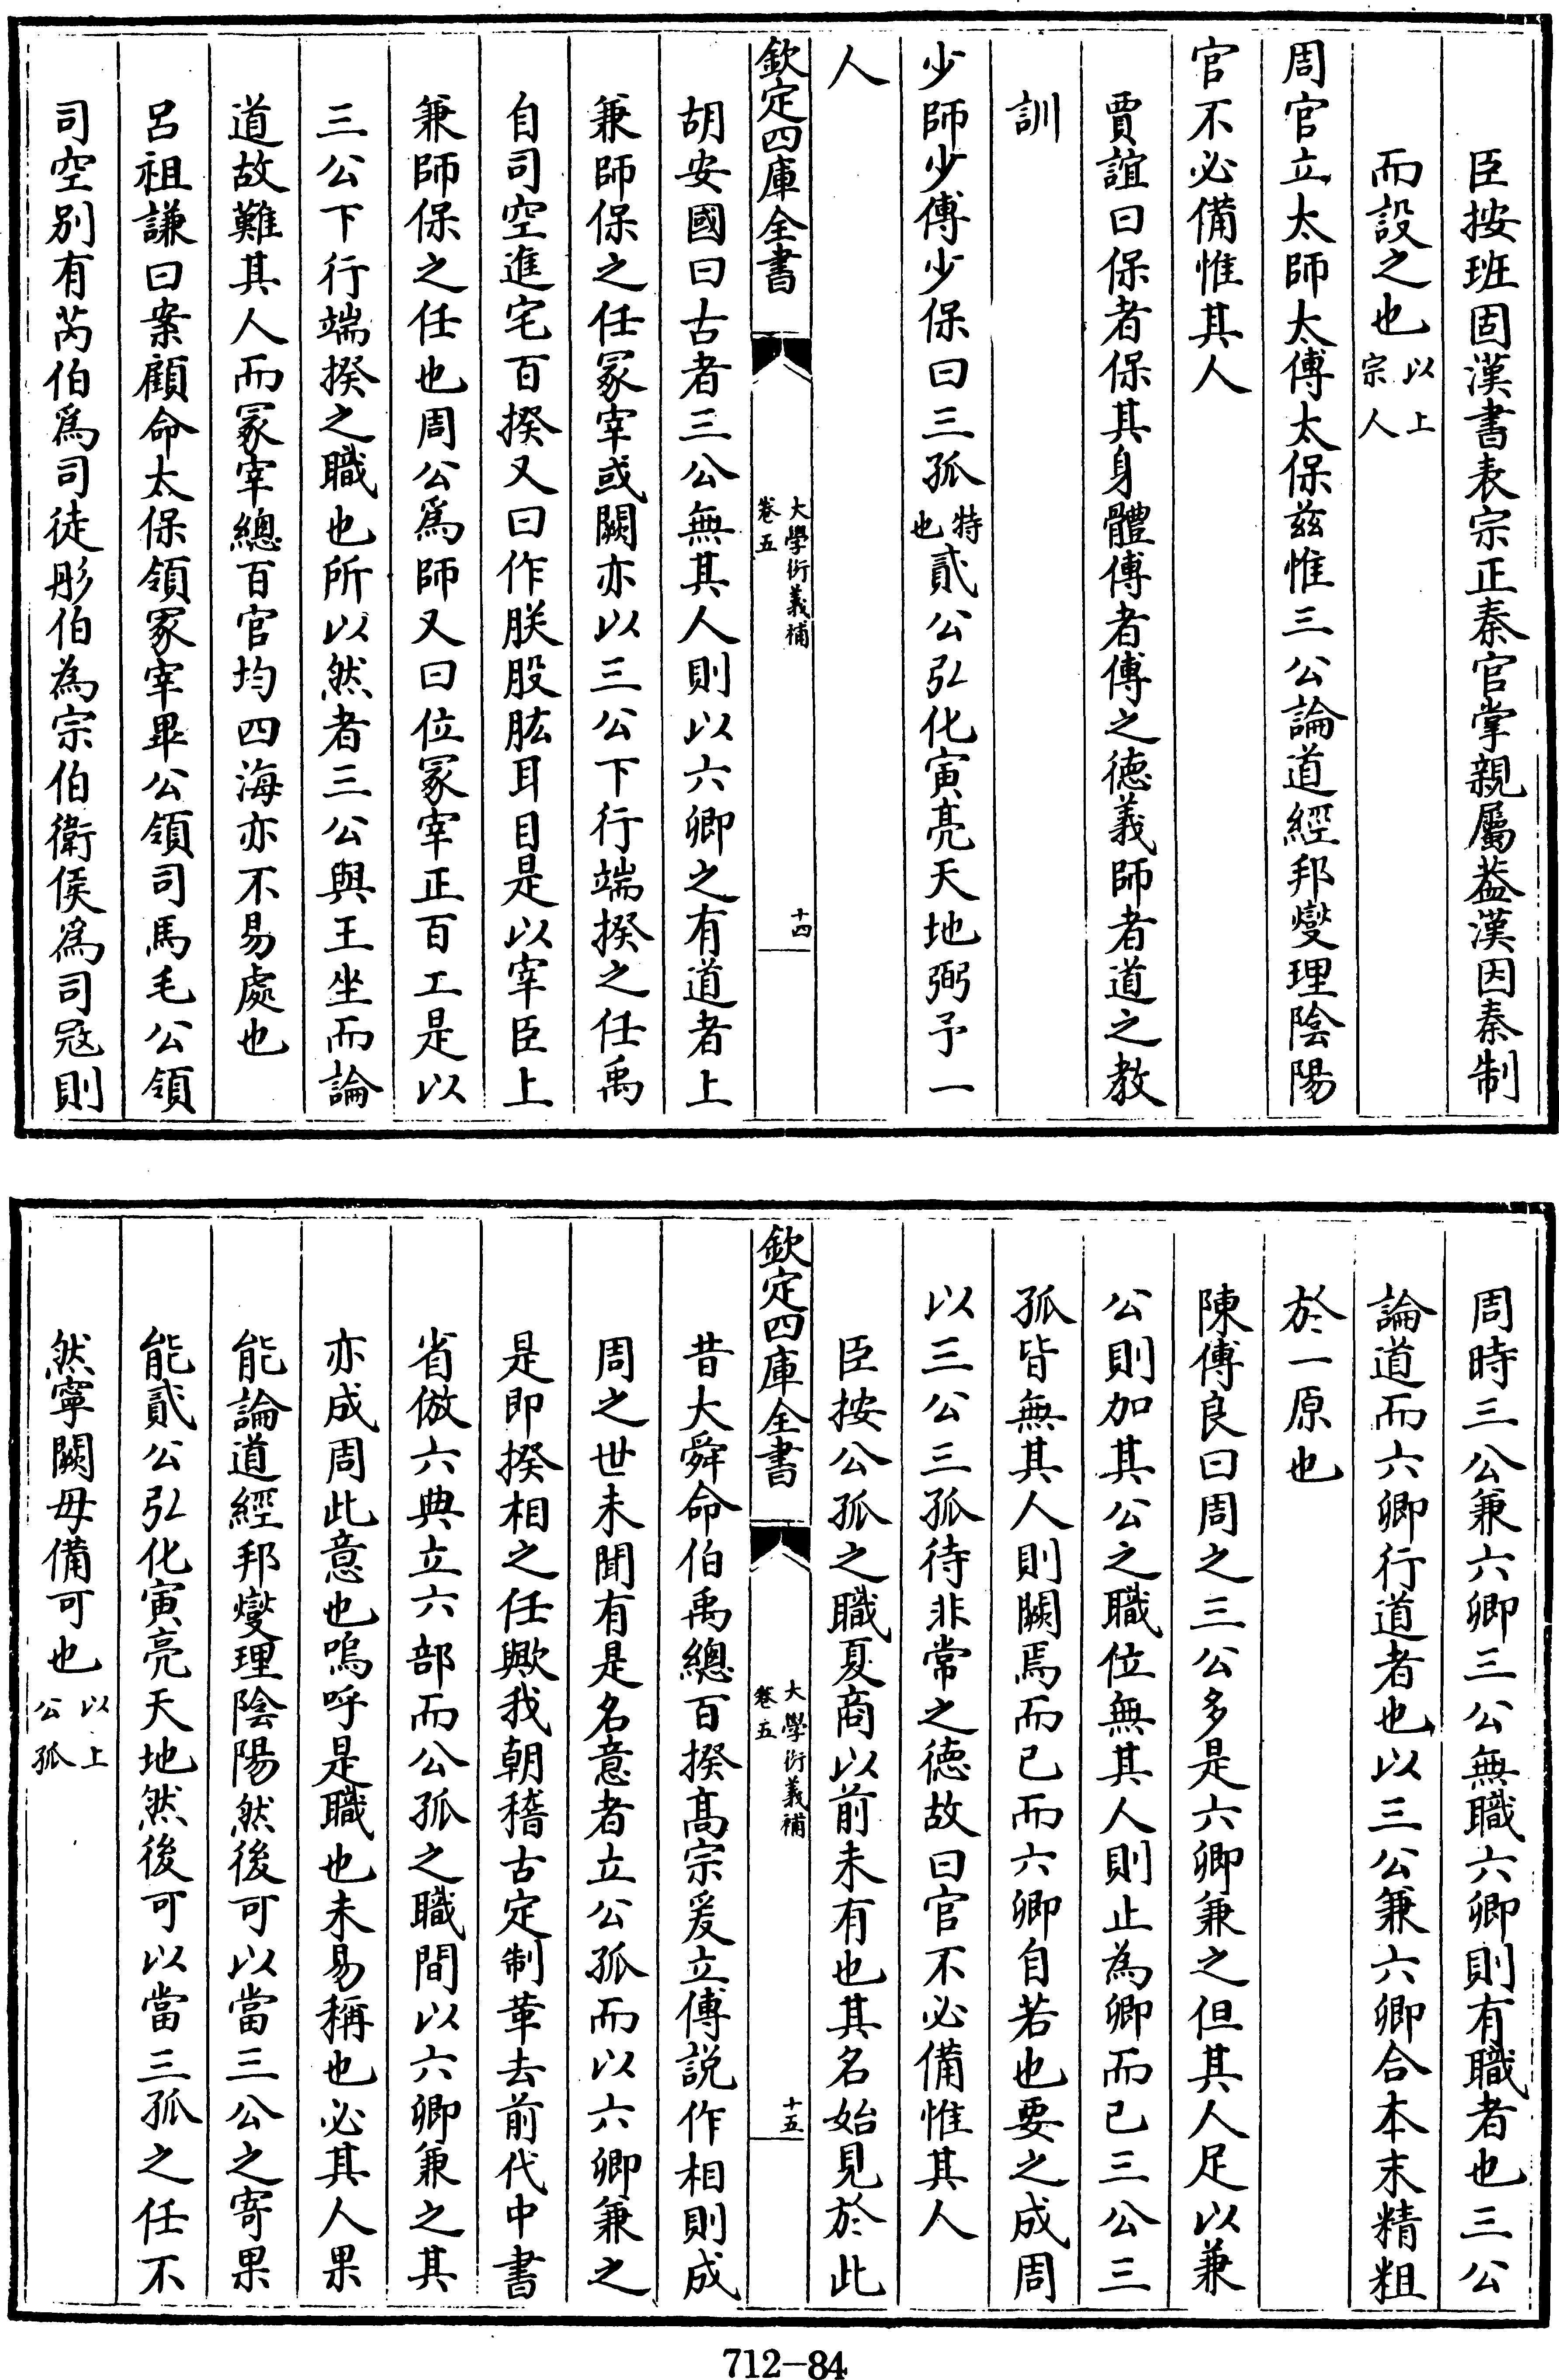 臣按班固漢書表宗正秦官掌親屬葢漢因秦制
而設之也以上宗人
周官立太師太傅太保兹惟三公論道經邦燮理陰陽
官不必備惟其人
賈誼曰保者保其身體傅者傅之德義師者道之教
訓
少師少傅少保曰三孤特也貳公弘化寅亮天地弼予一
人
欽定四庫全書
大學衍義補
卷五
十四
胡安國曰古者三公無其人則以六卿之有道者上
兼師保之任冢宰或闕亦以三公下行端揆之任禹
自司空進宅百揆又曰作朕股肱耳目是以宰臣上
兼師保之任也周公爲師又曰位冢宰正百工是以
三公下行端揆之職也所以然者三公與王坐而論
道故難其人而冢宰總百官均四海亦不易處也
呂祖謙曰案顧命太保領冢宰畢公領司馬毛公領
司空别有芮伯爲司徒彤伯為宗伯衛侯爲司宼則
周時三公兼六卿三公無職六卿則有職者也三公
論道而六卿行道者也以三公兼六卿合本末精粗
於一原也
陳傅良曰周之三公多是六卿兼之但其人足以兼
公則加其公之職位無其人則止為卿而已三公三
孤皆無其人則闕焉而已而六卿自若也要之成周
以三公三孤待非常之德故曰官不必備惟其人
臣按公孤之職夏商以前未有也其名始見於此
欽定四庫全書
大學衍義補
卷五
十五
昔大舜命伯禹總百揆髙宗爰立傅説作相則成
周之世未聞有是名意者立公孤而以六卿兼之
是即揆相之任歟我朝稽古定制革去前代中書
省倣六典立六部而公孤之職間以六卿兼之其
亦成周此意也嗚呼是職也未易稱也必其人果
能論道經邦燮理陰陽然後可以當三公之寄果
能貳公弘化寅亮天地然後可以當三孤之任不
然寧闕毋備可也以上公孤
712-84